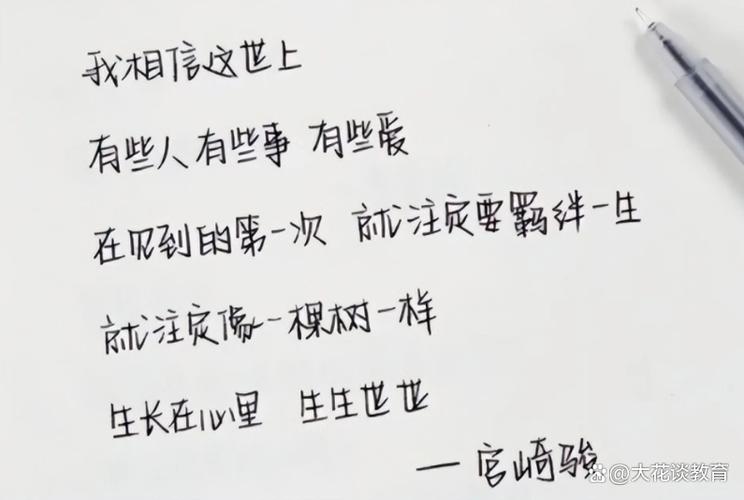 我相信这世上
有些人有些事 有些爱
在见到的第一次 就注定要羁绊一生
就注定像一棵树一样
生长在心里 生生世世
— 宫崎骏
大花谈教育